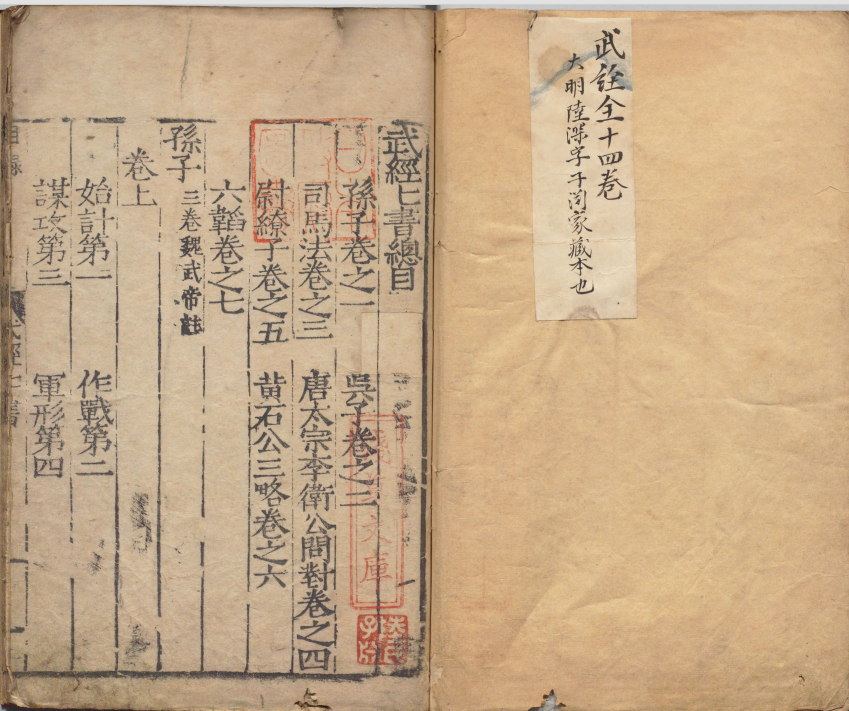 武詮全十四卷
大明陸深字子淵家藏本也
武經七書總目
孫子卷之一 吳子卷之二
司馬法卷之三 唐太宗李衛公問對卷之四
尉繚子卷之五 黃石公三略卷之六
六韜卷之七
孫子 三卷魏武帝註
卷上
始計第一 作戰第二
謀攻第三 軍形第四
目錄 武經七書
文庫